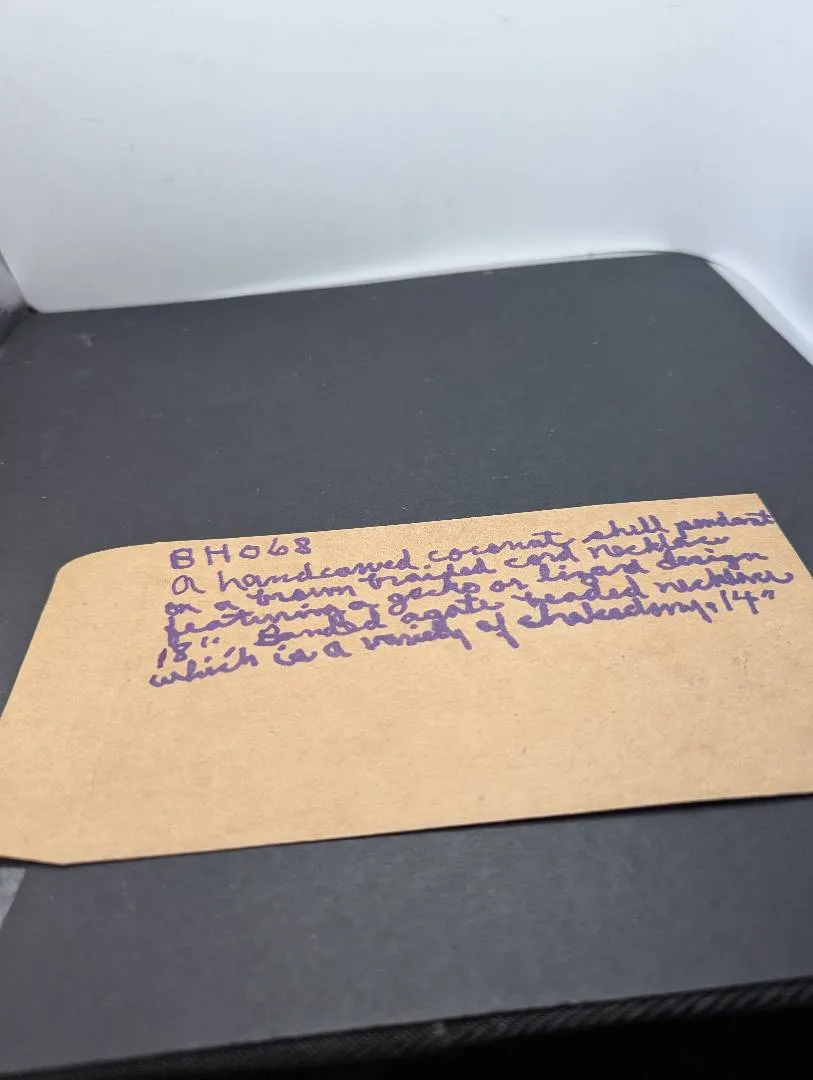 BH068
A handcarved coconut shell pendant
on a brown braided cord necklace
featuring a gecko or lizard design
18", Banded agate beaded necklace
which is a variety of chalcedony. 14"